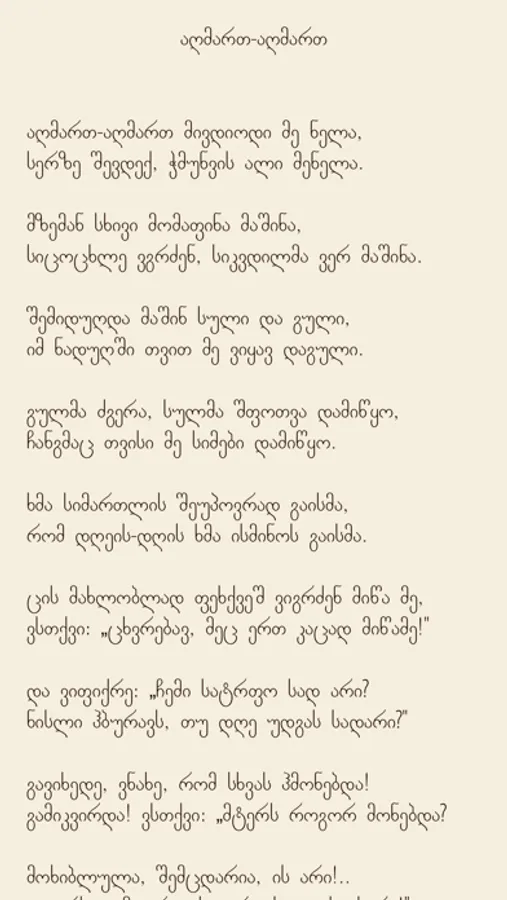 აღმართ-აღმართ
აღმართ-აღმართ მივდიოდი მე ნელა,
სერზე შევდექ, ჭმუნვის ალი მენელა.
მზემან სხივი მომაფინა მაშინა,
სიცოცხლე ვგრძენ, სიკვდილმა ვერ მაშინა.
შემიდუღდა მაშინ სული და გული,
იმ ნადუღში თვით მე ვიყავ დაგული.
გულმა ძგერა, სულმა შფოთვა დამიწყო,
ჩანგმაც თვისი მე სიმები დამიწყო.
ხმა სიმართლის შეუპოვრად გაისმა,
რომ დღეის-დღის ხმა ისმინოს გაისმა.
ცის მახლობლად ფეხქვეშ ვიგრძენ მიწა მე,
ვსთქვი: „ცხვრებავ, მეც ერთ კაცად მიწამე!"
და ვიფიქრე: „ჩემი სატრფო სად არი?
ნისლი ჰბურავს, თუ დღე უდგას სადარი?"
გავიხედე, ვნახე, რომ სხვას ჰმონებდა!
გამიკვირდა! ვსთქვი: „მტერს როგორ მონებდა?
მოხიბლულა, შემცდარია, ის არი!..